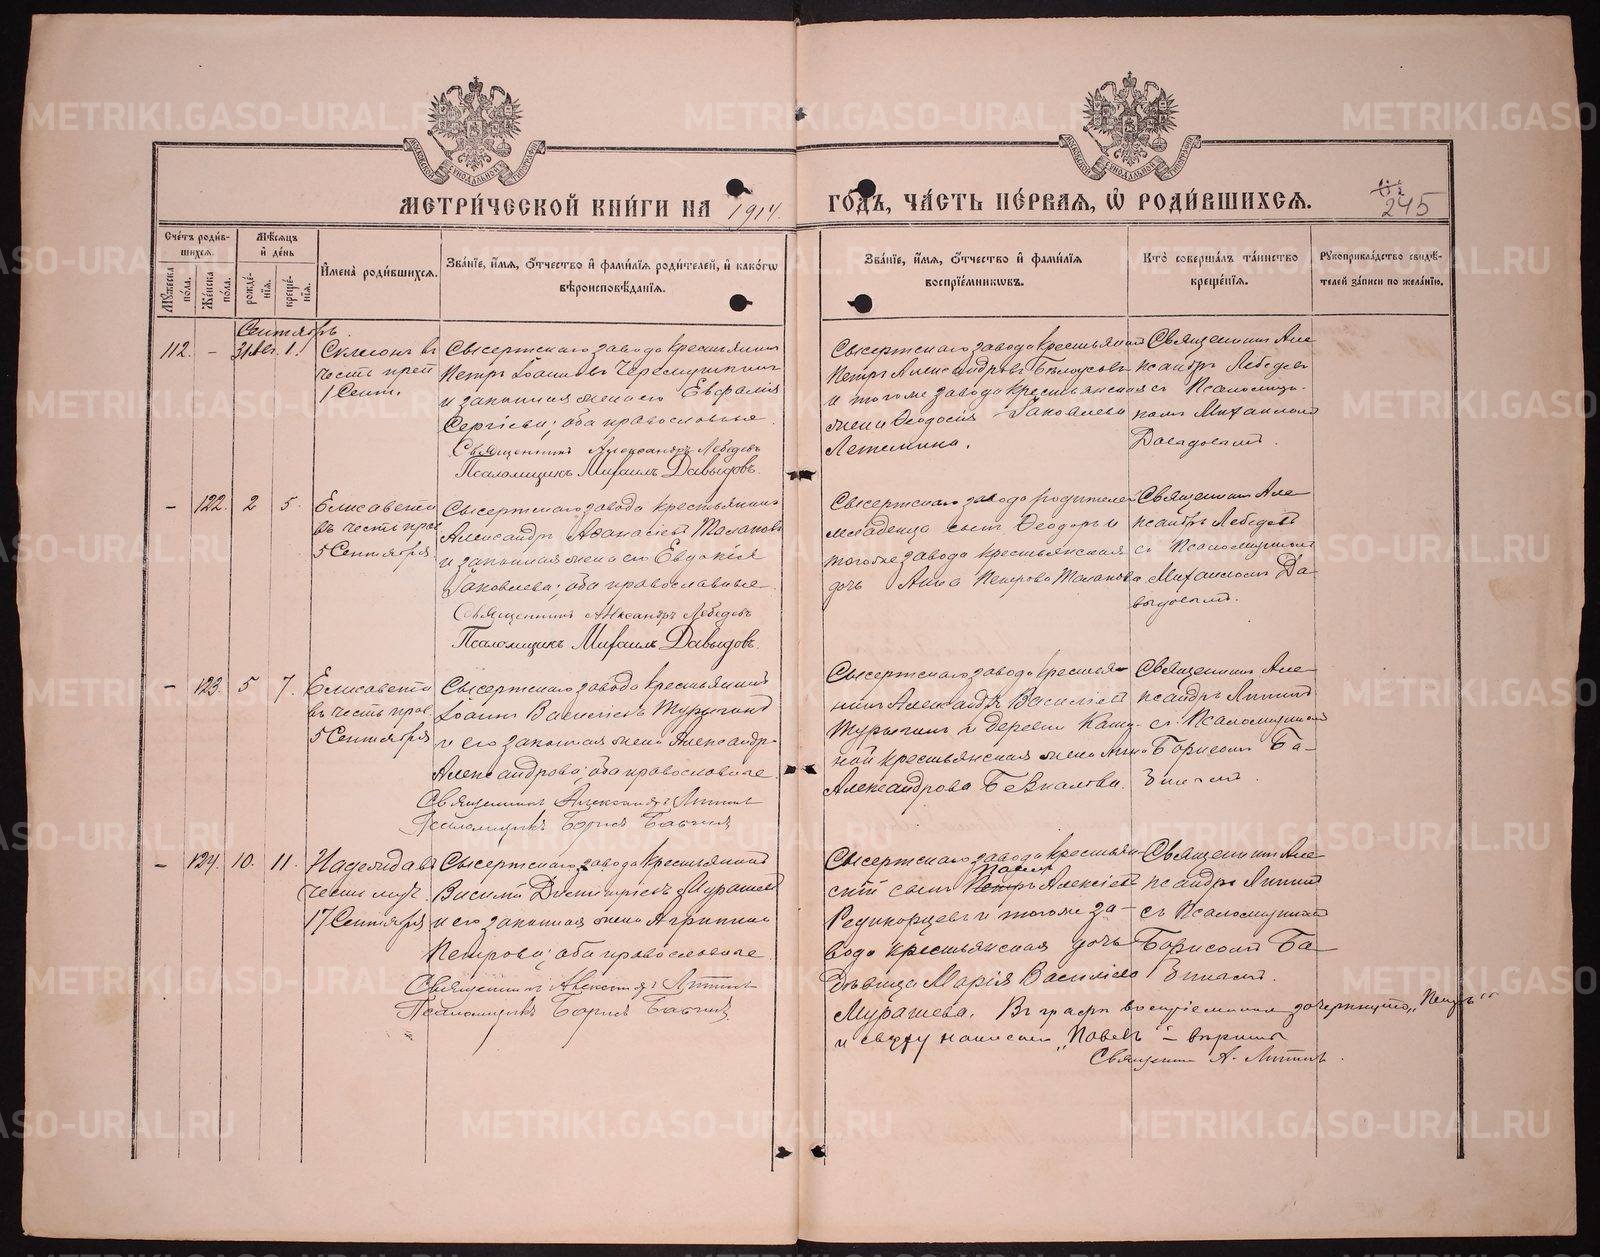 МЕТРИ́ЧЕСКОЙ КНИ́ГИ НА 1914
ГО́ДЪ, ЧА́СТЬ ПЕ́РВАЯ, Ѡ҆ РОДИ́ВШИХСЯ.
245
Сче́тъ роди́в-
шихся.
Му́жеска по́ла.
Же́нска по́ла.
Мѣ́сяцъ и҆ де́нь
рожде́нїя.
креще́нїя.
И҆мена̀ роди́вшихся.
Зва́нїе, и҆́мя, ѻ҆́тчество и҆ фами́лїя роди́телей, и҆ како́гѡ
вѣроисповѣ́данїя.
Зва́нїе, и҆́мя, ѻ҆́тчество и҆ фами́лїя
воспрїе́мникѡвъ.
Кто̀ соверша́лъ та́инство
креще́нїя.
Рꙋкоприкла́дство свидѣ́-
телей за́писи по жела́нїю.
Сентябрь.
112. – 31 Авг. 1. Симеонъ въ
честь преп
1 Сент.
Сысертскаго завода крестьянинъ
Петръ Іоанновъ
и законная жена его Евфалія
Сергіева; оба православные.
Священникъ Александръ Лебедевъ
Псаломщикъ Михаилъ Давыдовъ.
Сысертскаго завода крестьянинъ
Петръ Александровъ Белоусовъ
и того же завода крестьянская
жена Ѳеодосія Іаковлева
Летемина.
Священникъ Але-
ксандръ Лебедевъ
съ Псаломщи-
комъ Михаиломъ
Давыдовымъ.
– 122. 2 5. Елисавета
въ честь прав
5 Сентября.
Сысертскаго завода крестьянинъ
Александръ Аѳанасіевъ Талановъ
и законная жена его Евдокія
Іаковлева; оба православные.
Священникъ Александръ Лебедевъ
Псаломщикъ Михаилъ Давыдовъ.
Сысертскаго завода родителей
младенца сынъ Ѳеодоръ и
того же завода крестьянская
дочь Анна Петрова Таланова
Священникъ Але-
ксандръ Лебедевъ
съ Псаломщикомъ
Михаиломъ Да-
выдовымъ.
– 123. 5 7. Елисавета
въ честь прав.
5 Сентября
Сысертскаго завода крестьянинъ
Іоаннъ Василіевъ Турыгинъ
и его законная жена Александра
Александрова; оба православные
Священникъ Александръ
Псаломщикъ Борисъ
Сысертскаго завода крестья-
нинъ Александръ Василіевъ
Турыгинъ и деревни Каши-
ной крестьянская жена Анна
Александрова
Священникъ Але-
ксандръ
съ Псаломщикомъ
Борисомъ Ба-
– 124. 10. 11. Надежда въ
честь муч.
17 Сентября
Сысертскаго завода крестьянинъ
Василій Димитріевъ Мурашевъ
и его законная жена Агриппина
Петрова; оба православные.
Священникъ Александръ
Псаломщикъ Борисъ
Сысертскаго завода крестьян-
скій сынъ Петръ Павелъ Алексіевъ
Редикорцевъ и того же за-
вода крестьянская дочь
дѣвица Марія Василіева
Мурашева. Въ графѣ воспріемниковъ зачеркнуто „Петръ“
и сверху написано „Павелъ“ – вѣрить
Священникъ А.
Священникъ Але-
ксандръ
съ Псаломщикомъ
Борисомъ Ба-
METRIKI.GASO-URAL.RU